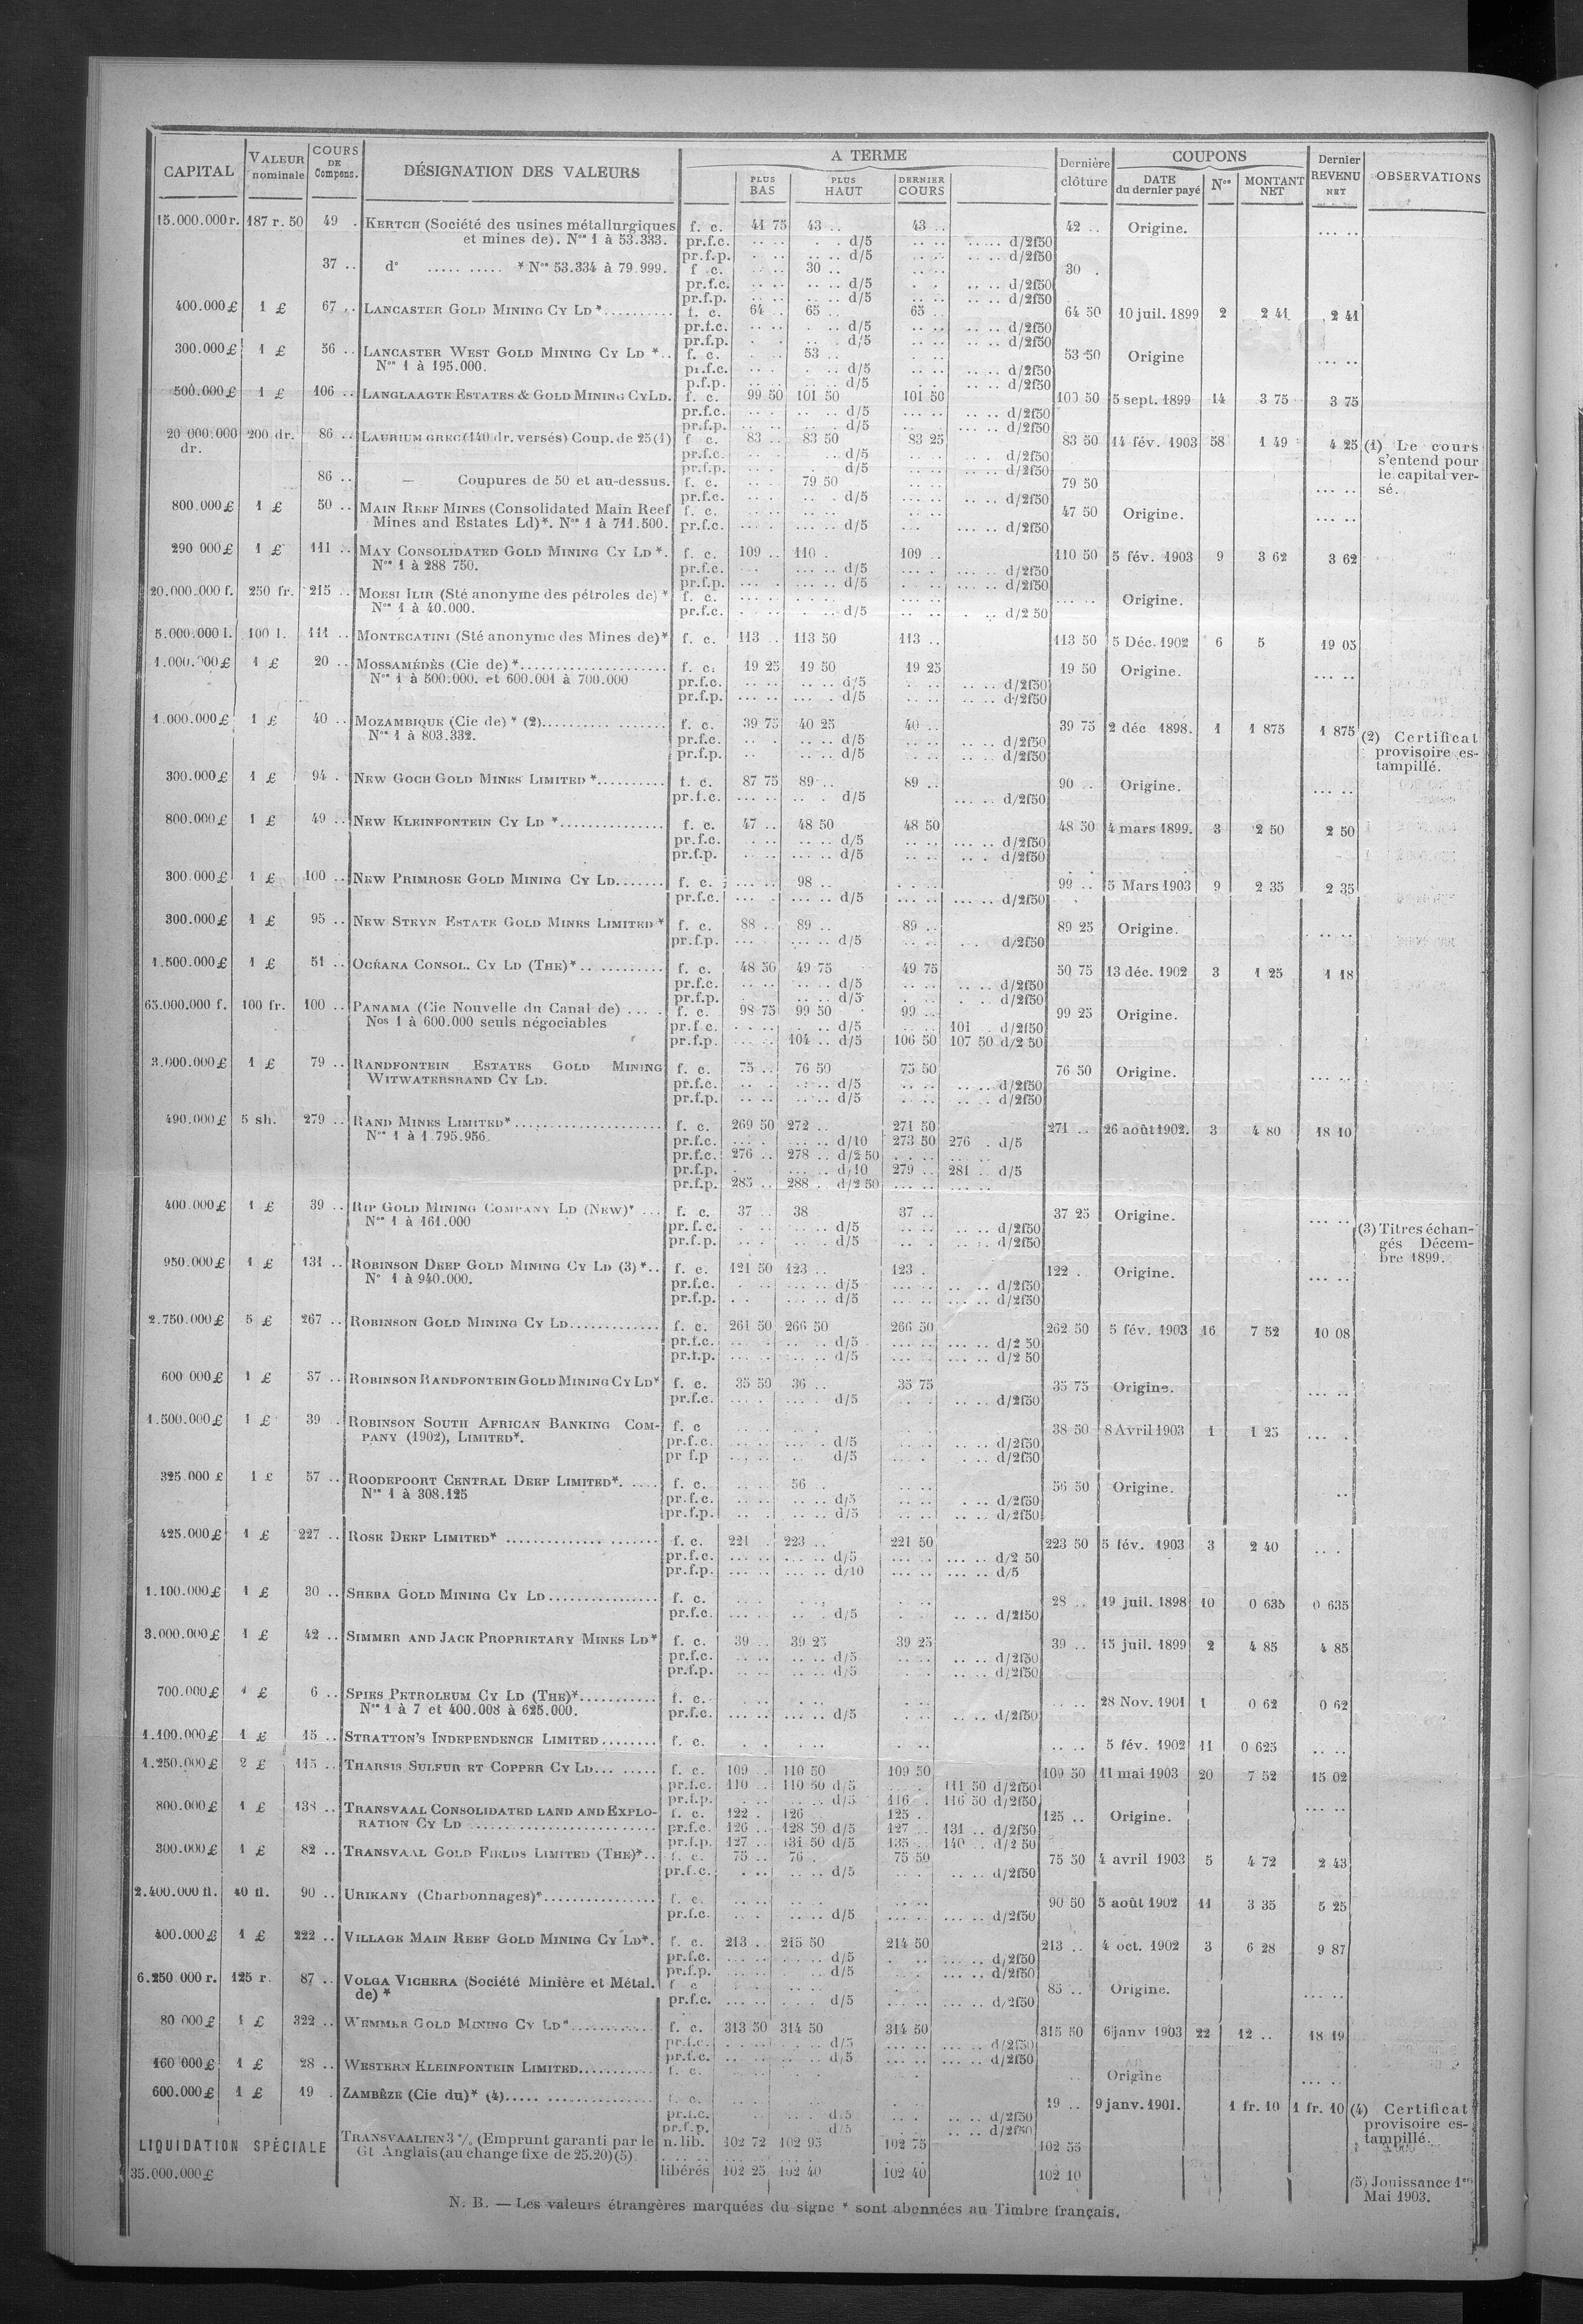 CAPITAL VALEUR nominale COURS DE Compens. DÉSIGNATION DES VALEURS A TERME PLUS BAS PLUS HAUT DERNIER COURS Dernière clôture COUPONS DATE du dernier payé Nos MONTANT NET Dernier REVENU NET OBSERVATIONS
15.000.000 r. 187 r. 50 49 . KERTCH (Société des usines métallurgiques f. c. 41 75 43 .. 43 .. 42 .. Origine. ... ..
et mines de). Nos 1 à 53.333. pr.f.c. d/5 d/2f50
pr.f.p. d/5 d/2f50
37 .. do ..... ..... * Nos 53.334 à 79.999. f. c. 30 .. 30 .
pr.f.c. d/5 d/2f50
pr.f.p. d/5 d/2f50
400.000 £ 1 £ 67 .. LANCASTER GOLD MINING CY LD *.......... f. c. 64 .. 65 .. 65 .. 64 50 10 juil. 1899 2 2 41 2 41
pr.f.c. d/5 d/2f50
pr.f.p. d/5 d/2f50
300.000 £ 1 £ 56 .. LANCASTER WEST GOLD MINING CY LD *.. f. c. 53 .. 53 50 Origine ... ..
Nos 1 à 195.000. pr.f.c. d/5 d/2f50
p.f.p. d/5 d/2f50
500.000 £ 1 £ 106 .. LANGLAAGTE ESTATES & GOLD MINING CY LD. f. c. 99 50 101 50 101 50 100 50 5 sept. 1899 14 3 75 3 75
pr.f.c. d/5 d/2f50
pr.f.p. d/5 d/2f50
20 000.000 dr. 200 dr. 86 .. LAURIUM GREC (140 dr. versés) Coup. de 25 (1) f. c. 83 .. 83 50 83 25 83 50 14 fév. 1903 58 1 49 4 25 (1) Le cours
pr.f.c. d/5 d/2f50 s'entend pour
pr.f.p. d/5 d/2f50 le capital ver-
86 .. — Coupures de 50 et au-dessus. f. c. 79 50 79 50 sé.
pr.f.c. d/5 d/2f50
800.000 £ 1 £ 50 .. MAIN REEF MINES (Consolidated Main Reef f. c. 47 50 Origine. ... ..
Mines and Estates Ld)*. Nos 1 à 711.500. pr.f.c. d/5 d/2f50
290 000 £ 1 £ 111 .. MAY CONSOLIDATED GOLD MINING CY LD *. f. c. 109 .. 110 . 109 .. 110 50 5 fév. 1903 9 3 62 3 62
Nos 1 à 288 750. pr.f.c. d/5 d/2f50
pr.f.p. d/5 d/2f50
20.000.000 f. 250 fr. 215 .. MOESI ILIR (Sté anonyme des pétroles de) * f. c. Origine.
Nos 1 à 40.000. pr.f.c. d/5 d/2 50
5.000.000 l. 100 l. 111 .. MONTECATINI (Sté anonyme des Mines de)* f. c. 113 .. 113 50 113 .. 113 50 5 Déc. 1902 6 5 19 05
1.000.000 £ 1 £ 20 .. MOSSAMÉDÈS (Cie de) *..................... f. c. 19 25 19 50 19 25 19 50 Origine. ... ..
Nos 1 à 500.000. et 600.001 à 700.000 pr.f.c. d/5 d/2f50
pr.f.p. d/5 d/2f50
1.000.000 £ 1 £ 40 .. MOZAMBIQUE (Cie de) * (2)......... ....... f. c. 39 75 40 25 40 .. 39 75 2 déc 1898. 1 1 875 1 875 (2) Certificat
Nos 1 à 803.332. pr.f.c. d/5 d/2f50 provisoire es-
pr.f.p. d/5 d/2f50 tampillé.
300.000 £ 1 £ 94 . NEW GOCH GOLD MINES LIMITED *.......... f. c. 87 75 89 .. 89 .. 90 .. Origine. ... ..
pr.f.c. d/5 d/2f50
800.000 £ 1 £ 49 .. NEW KLEINFONTEIN CY LD *............... f. c. 47 .. 48 50 48 50 48 50 4 mars 1899. 3 2 50 2 50
pr.f.c. d/5 d/2f50
pr.f.p. d/5 d/2f50
300.000 £ 1 £ 100 .. NEW PRIMROSE GOLD MINING CY LD....... f. c. 98 .. 99 .. 5 Mars 1903 9 2 35 2 35
pr.f.c. d/5 d/2f50
300.000 £ 1 £ 95 .. NEW STEYN ESTATE GOLD MINES LIMITED * f. c. 88 .. 89 .. 89 .. 89 25 Origine. ... ..
pr.f.p. d/5 d/2f50
1.500.000 £ 1 £ 51 .. OCEANA CONSOL. CY LD (THE)*.. .......... f. c. 48 50 49 75 49 75 50 75 13 déc. 1902 3 1 25 1 18
pr.f.c. d/5 d/2f50
pr.f.p. d/5 d/2f50
65.000.000 f. 100 fr. 100 .. PANAMA (Cie Nouvelle du Canal de) .... . f. c. 98 75 99 50 99 .. 99 25 Origine.
Nos 1 à 600.000 seuls négociables pr.f.c. d/5 101 . d/2f50
pr.f.p. 104 .. d/5 106 50 107 50 d/2 50
3.000.000 £ 1 £ 79 .. RANDFONTEIN ESTATES GOLD MINING f. c. 75 .. 76 50 75 50 76 50 Origine. ... ..
WITWATERSRAND CY LD. pr.f.c. d/5 d/2f50
pr.f.p. d/5 d/2f50
490.000 £ 5 sh. 279 .. RAND MINES LIMITED*...................... f. c. 269 50 272 .. 271 50 271 .. 26 août 1902. 3 4 80 18 10
Nos 1 à 1.795.956. pr.f.c. d/10 273 50 276 . d/5
pr.f.c. 276 .. 278 .. d/2 50
pr.f.p. d/10 279 .. 281 .. d/5
pr.f.p. 285 .. 288 . d/2 50
400.000 £ 1 £ 39 .. RIP GOLD MINING COMPANY LD (NEW)* ... f. c. 37 .. 38 37 .. 37 25 Origine. ... ..
Nos 1 à 161.000 pr.f.c. d/5 d/2f50 (3) Titres échan-
pr.f.p. d/5 d/2f50 gés Décem-
950.000 £ 1 £ 131 .. ROBINSON DEEP GOLD MINING CY LD (3) *.. f. c. 121 50 123 .. 123 . 122 . Origine. ... .. bre 1899.
No 1 à 940.000. pr.f.c. d/5 d/2f50
pr.f.p. d/5 d/2f50
2.750.000 £ 5 £ 267 .. ROBINSON GOLD MINING CY LD............. f. c. 261 50 266 50 266 50 262 50 5 fév. 1903 16 7 52 10 08
pr.f.c. d/5 d/2 50
pr.f.p. d/5 d/2 50
600 000 £ 1 £ 37 .. ROBINSON RANDFONTEIN GOLD MINING CY LD* f. c. 35 50 36 .. 35 75 35 75 Origine. ... ..
pr.f.c. d/5 d/2f50
1.500.000 £ 1 £ 39 . ROBINSON SOUTH AFRICAN BANKING COM- f. c 38 50 8 Avril 1903 1 1 25 ... .
PANY (1902), LIMITED*. pr.f.c. d/5 d/2f50
pr f.p d/5 d/2f50
325.000 £ 1 £ 57 .. ROODEPOORT CENTRAL DEEP LIMITED*. .... f. c. 56 .. 56 50 Origine.
Nos 1 à 308.125 pr.f.c. d/5 d/2f50
pr.f.p. d/5 d/2f50
425.000 £ 1 £ 227 .. ROSE DEEP LIMITED* .............. ....... f. c. 221 . 223 .. 221 50 223 50 5 fév. 1903 3 2 40
pr.f.c. d/5 d/2 50
pr.f.p. d/10 d/5
1.100.000 £ 1 £ 30 .. SHEBA GOLD MINING CY LD................ f. c. 28 .. 19 juil. 1898 10 0 635 0 635
pr.f.c. d/5 d/2f50
3.000.000 £ 1 £ 42 .. SIMMER AND JACK PROPRIETARY MINES LD* f. c. 39 .. 39 25 39 25 39 .. 15 juil. 1899 2 4 85 4 85
pr.f.c. d/5 d/2f50
pr.f.p. d/5 d/2f50
700.000 £ 1 £ 6 .. SPIES PETROLEUM CY LD (THE)*........... f. c. 28 Nov. 1901 1 0 62 0 62
Nos 1 à 7 et 400.008 à 625.000. pr.f.c. d/5 d/2f50
1.100.000 £ 1 £ 15 .. STRATTON'S INDEPENDENCE LIMITED........ f. c. 5 fév. 1902 11 0 625
1.250.000 £ 2 £ 115 .. THARSIS SULFUR ET COPPER CY LD... ..... f. c. 109 .. 110 50 109 50 109 50 11 mai 1903 20 7 52 15 02
pr.f.c. 110 .. 110 50 d/5 111 50 d/2f50
pr.f.p. d/5 116 . 116 50 d/2f50
800.000 £ 1 £ 138 .. TRANSVAAL CONSOLIDATED LAND AND EXPLO- f. c. 122 . 126 125 . 125 .. Origine. ... ..
RATION CY LD .......................... pr.f.c. 126 .. 128 50 d/5 127 .. 131 .. d/2f50
pr.f.p. 127 .. 131 50 d/5 135 .. 140 .. d/2 50
300.000 £ 1 £ 82 .. TRANSVAAL GOLD FIELDS LIMITED (THE)*.. f. c. 75 .. 76 . 75 50 75 50 4 avril 1903 5 4 72 2 43
pr.f.c. d/5 d/2f50
2.400.000 fl. 40 fl. 90 .. URIKANY (Charbonnages)*................ f. c. 90 50 5 août 1902 11 3 35 5 25
pr.f.c. d/5 d/2f50
400.000 £ 1 £ 222 .. VILLAGE MAIN REEF GOLD MINING CY LD*. f. c. 213 .. 215 50 214 50 213 .. 4 oct. 1902 3 6 28 9 87
pr.f.c. d/5 d/2f50
pr.f.p. d/5 d/2f50
6.250 000 r. 125 r. 87 .. VOLGA VICHERA (Société Minière et Métal. f. c 85 .. Origine. ... ..
de) * pr.f.c. d/5 d/2f50
80 000 £ 1 £ 322 .. WEMMER GOLD MINING CY LD*............ f. c. 313 50 314 50 314 50 315 50 6 janv 1903 22 12 .. 18 19
pr.f.c. d/5 d/2f50
pr.f.c. d/5 d/2f50
160 000 £ 1 £ 28 .. WESTERN KLEINFONTEIN LIMITED........... f. c. Origine ... ..
600.000 £ 1 £ 19 . ZAMBÈZE (Cie du)* (4)..... ............... f. c. 19 .. 9 janv. 1901. 1 fr. 10 1 fr. 10 (4) Certificat
pr.f.c. d/5 d/2f50 provisoire es-
pr.f.p. d/5 d/2f50 tampillé.
LIQUIDATION SPÉCIALE TRANSVAALIEN 3 % (Emprunt garanti par le n. lib. 102 72 102 95 102 75 102 55
Gt Anglais (au change fixe de 25.20) (5)
35.000.000 £ libérés 102 25 102 40 102 40 102 10 (5) Jouissance 1er
Mai 1903.
N. B. — Les valeurs étrangères marquées du signe * sont abonnées au Timbre français.